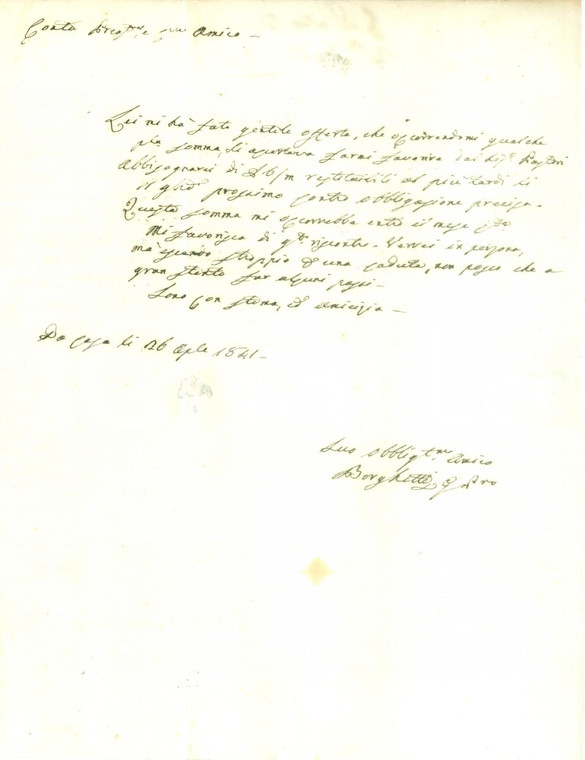 Conte Preg.mo e suo Amico –
Lei mi hà fato gentile offerta, che occorrendomi qualche
somma, farmi favorire dai
abbisognarei di 6/m restituibili al più tardi li
prossimo contro obbligazione precisa.
Questa somma mi occorrebbe entro il mese
Mi favorisca di riscontro. Verrei in persona,
mà essendo stroppio d'una caduta, non posso che a
gran stento far alcuni passi –
Sono con stima, ed amicizia –
Da casa li 26 Aple 1841 –
Suo Obbligt.mo Amico
Borghetti